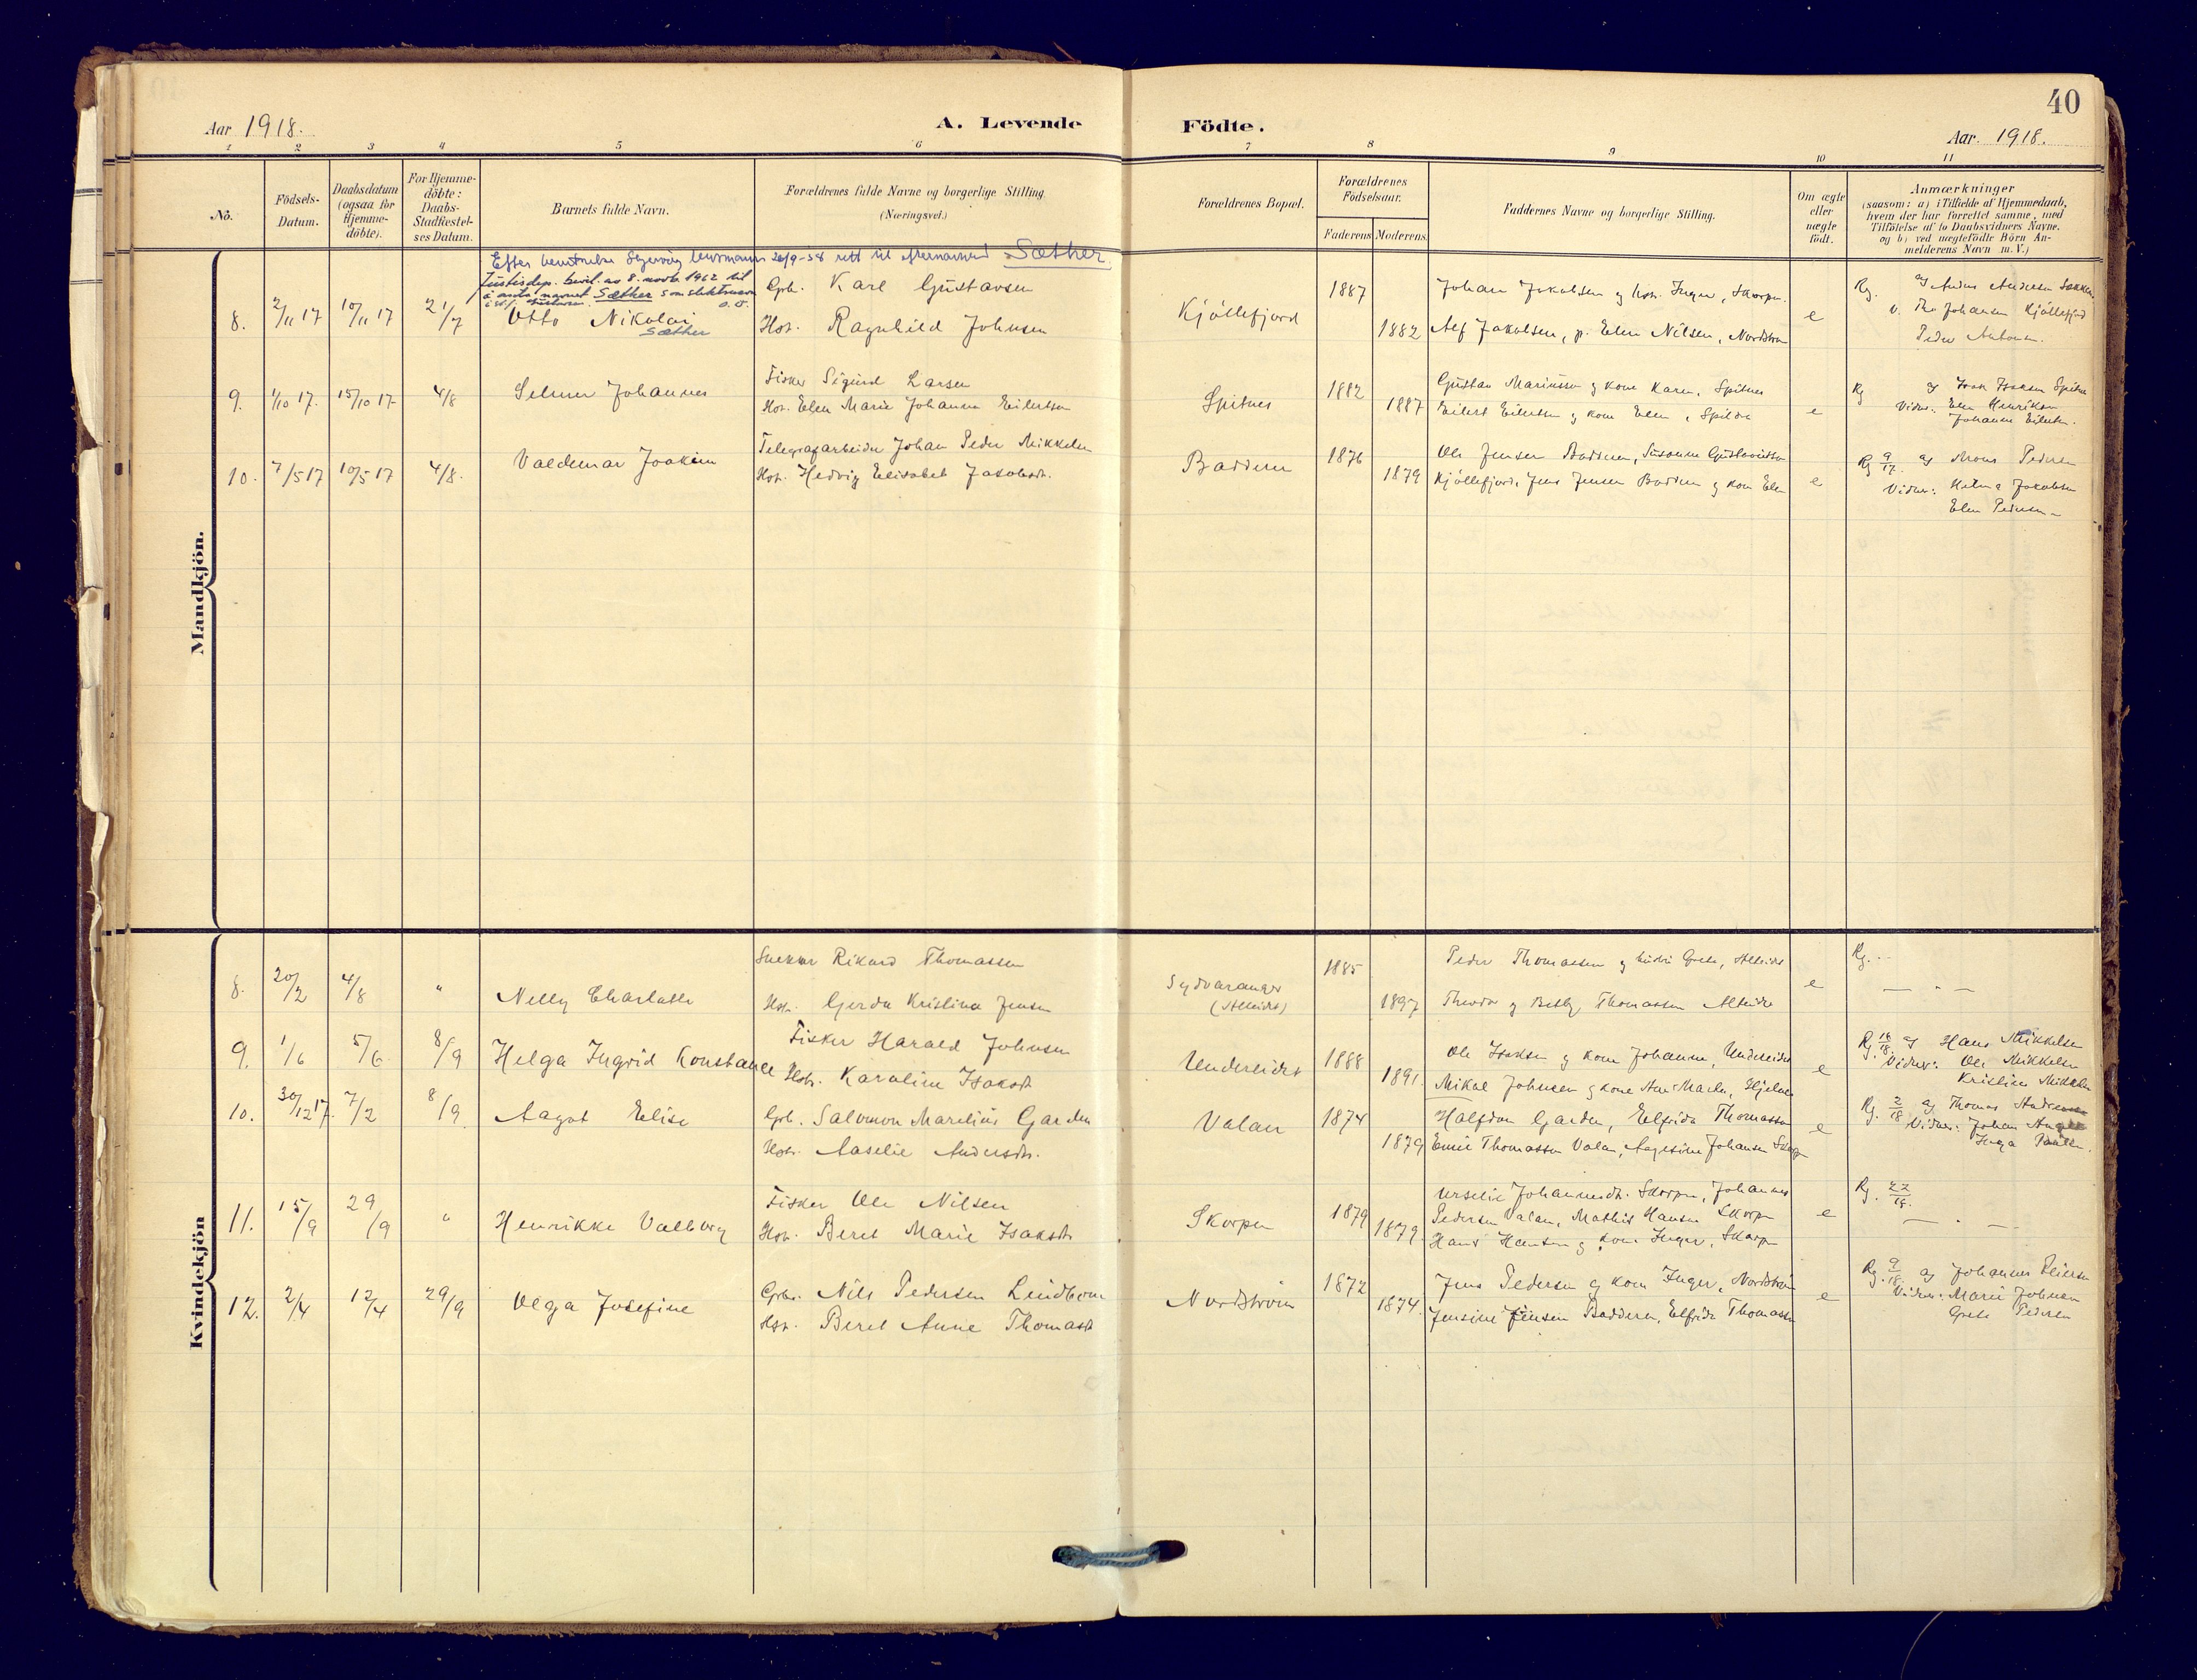 40
Aar 1918.
A. Levende
Födte.
Aar 1918.
1 2 3 4 5 6 7 8 9 10 11
No.
Födsels-
Datum.
Daabsdatum
(ogsaa for
Hjemme-
döbte).
For Hjemme-
döbte:
Daabs-
Stadfæstel-
ses Datum.
Barnets fulde Navn.
Forældrenes fulde Navne og borgerlige Stilling
(Næringsvei.)
Forældrenes Bopæl.
Forældrenes
Födselsaar.
Faderens Moderens
Faddernes Navne og borgerlige Stilling.
Om ægte
eller
uægte
födt.
Anmærkninger
(saasom: a) i Tilfælde af Hjemmedaab,
hvem der har forrettet samme, med
Tilföielse af to Daabsvidners Navne,
og b) ved uægtefödte Börn An-
melderens Navn m. V.)
Mandkjön.
Efter 26/9-58 rett til efternavnet Sæther.
Justisdep. bevil. av 8. novb. 1962 til
å anta navnet Sæther som slektsnavn
8. 2/11 17 10/11 17 21/7 Otto Nikolai
Sæther
Gpb. Karl Gustavsen
Hst. Ragnhild Johnsen
Kjöllefjord 1887 1882
Johan Jakobsen og Inger, Skorpn.
Alf Jakobsen, p. Elen Nilsen, Nordström
e
Rg. af Andresen
v. Johansen Kjöllefjord
Peder
9. 1/10 17. 15/10 17 4/8 Selmer Johannes
Fisker Sigurd Larsen
Hst. Elen Marie Johanne Eilertsen
Spitnes 1882 1887
Gustav Mariussen og kone Karen, Spitnes
Eilert Eilertsen og kone Elen, Spildra
e
Rg af Isak Isaksen
Vidner: Elen Henriksen
Johanne Eilertsen.
10. 7/5 17 10/5 17 4/8. Valdemar Joakim
Telegrafarbeider Johan Peder Mikkelsen
Hst. Hedvig Elisabet Jakobsdt.
Badderen 1876 1879
Ole Jensen Badderen, Susanne Gustavsen
Kjöllefjord, Jens Jensen Badderen og kone Elen
e
Rg 9/17. af Mons Pedersen
Vidner: Jakobsen
Elen Pedersen
Kvindekjön
8. 20/2 4/8 " Nelly Charlotte
Snekker Rikard Thomassen
Hst. Gerda Kristina Jensen
Sydvaranger
(Alteidet)
1885 1897
Peder Thomassen og hustru Grete, Alteidet
Theodor og Betsy Thomassen Alteidet
e
Rg. - " -
9. 1/6 5/6 8/9 Helga Ingrid Konstance
Fisker Harald Johnsen
Hst. Karoline Isaksdt
Undereidet 1888 1891.
Ole Isaksen og kone Johanne, Undereidet
Mikal Johnsen og kone Ane Marie, Hjelnes
e
Rg. 16/18. af Hans Mikkelsen
Vidner: Ole Mikkelsen
Kristine Mikkelsen
10. 30/12 17. 7/2 8/9 Aagot Elise
Gpb. Salomon Marelius Garden
Hst. Aaselie Andersdt.
Valan 1874 1879
Halfdan Garden, Elfrida Thomassen
Emil Thomassen Valan, Aagesine Johansen Skorpn
e
Rg. 2/18 af Thomas
Vidner: Johan
Inga
11. 15/9 29/9 " Henrikke Valborg
Fisker Ole Nilsen
Hst. Beret Marie Isaksdt
Skorpen 1879 1879.
Urselie Johannesdt. Skorpen, Johannes
Pedersen Valan, Mathis Hansen Skorpn
Hans Hansen og kone Inger, Skorpn
e
Rg. 22/19. - " -
12. 2/4 12/4 29/9 Olga Josefine
Gpb. Nils Pedersen Lindbom
Hst. Beret Anne Thomasdt
Nordström 1872 1874.
Jens Pedersen og kone Inger, Nordström
Jensine Jensen Badderen, Elfrida Thomassen
e
Rg. 9/18. af Johannes
Vidner: Marie Johnsen
Grete Pedersen